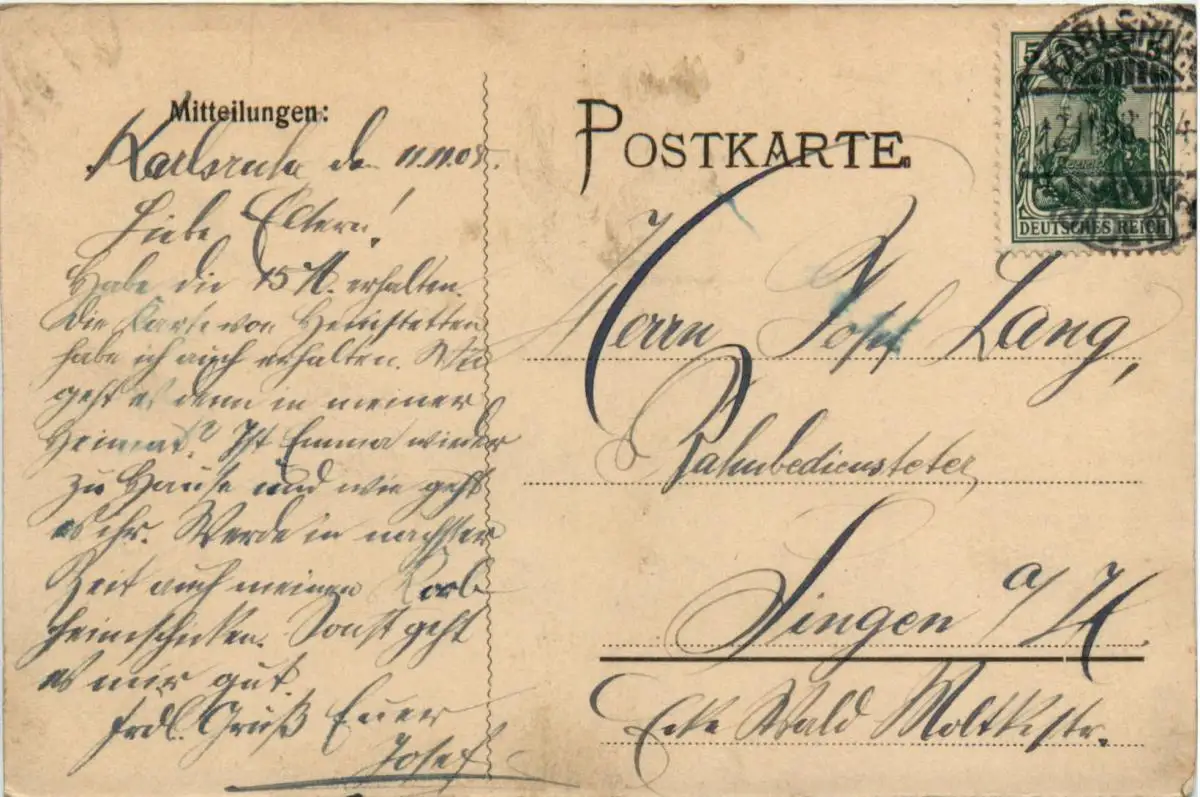 Mitteilungen:
Karlsruhe den 11.11.08.
Liebe Eltern!
Habe die 15 M. erhalten.
Die Karte von Heinstetten
habe ich auch erhalten. Wie
geht es denn in meiner
Heimat? Ist Emma wieder
zu Hause und wie geht
es ihr. Werde in nächster
Zeit auch meinen Korb
heimschicken. Sonst geht
es mir gut.
Frdl. Gruß Euer
Josef
POSTKARTE
5
KARLSRUHE
DEUTSCHES REICH
Herrn Josef Lang,
Bahnbediensteter
Singen a/H
Ecke Wald Moltkestr.